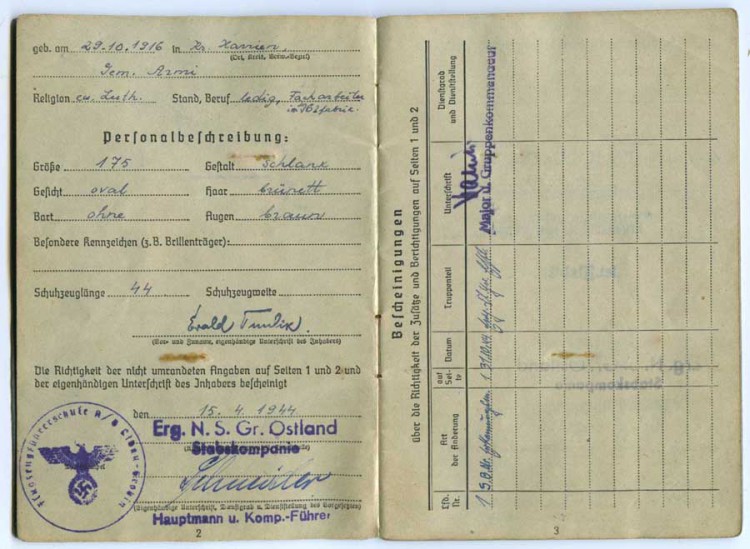 geb. am 29.10.1916 in Kr. Harrien,
(Ort, Kreis, Verw.-Bezirk)
Gem. Armi
Religion ev. Luth. Stand, Beruf ledig, Facharbeiter
Personalbeschreibung:
Größe 175 Gestalt schlank
Gesicht oval Haar brünett
Bart ohne Augen braun
Besondere Kennzeichen (z.B. Brillenträger):
Schuhzeuglänge 44 Schuhzeugweite
Evald
(Vor- und Zuname, eigenhändige Unterschrift des Inhabers)
Die Richtigkeit der nicht umrandeten Angaben auf Seiten 1 und 2 und
der eigenhändigen Unterschrift des Inhabers bescheinigt
den 15. 4. 1944
Erg. N. S. Gr. Ostland
Stabskompanie
(Eigenhändige Unterschrift, Dienstgrad u. Dienststellung des Vorgesetzten)
Hauptmann u. Komp.-Führer
2
Bescheinigungen
über die Richtigkeit der Zusätze und Berichtigungen auf Seiten 1 und 2
Lfd. Nr.
Art der Änderung
auf Seite
Datum
Truppenteil
Unterschrift
Dienstgrad und Dienststellung
1
Major u. Gruppenkommandeur
3